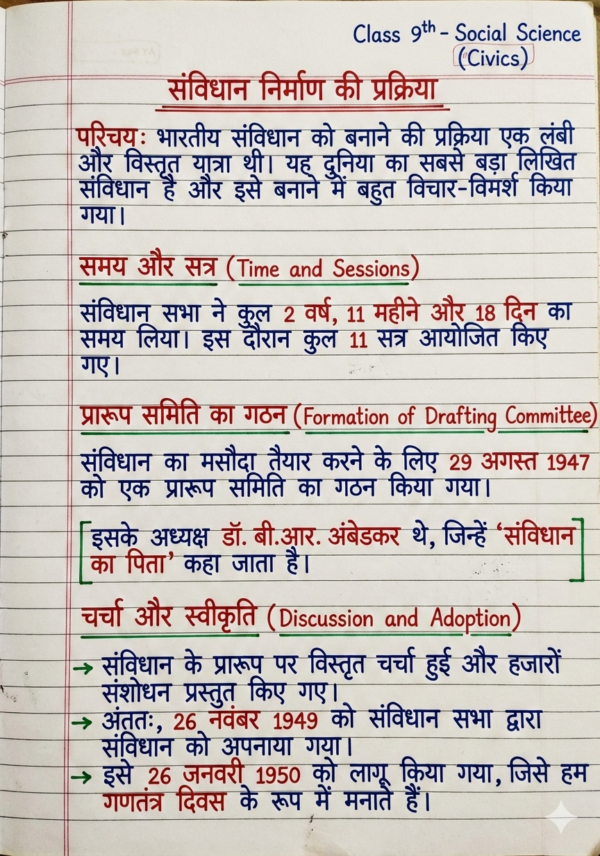 Class 9th - Social Science
(Civics)
संविधान निर्माण की प्रक्रिया
परिचय: भारतीय संविधान को बनाने की प्रक्रिया एक लंबी
और विस्तृत यात्रा थी। यह दुनिया का सबसे बड़ा लिखित
संविधान है और इसे बनाने में बहुत विचार-विमर्श किया
गया।
समय और सत्र (Time and Sessions)
संविधान सभा ने कुल 2 वर्ष, 11 महीने और 18 दिन का
समय लिया। इस दौरान कुल 11 सत्र आयोजित किए
गए।
प्रारूप समिति का गठन (Formation of Drafting Committee)
संविधान का मसौदा तैयार करने के लिए 29 अगस्त 1947
को एक प्रारूप समिति का गठन किया गया।
[इसके अध्यक्ष डॉ. बी.आर. अंबेडकर थे, जिन्हें ‘संविधान
का पिता’ कहा जाता है।]
चर्चा और स्वीकृति (Discussion and Adoption)
→ संविधान के प्रारूप पर विस्तृत चर्चा हुई और हजारों
संशोधन प्रस्तुत किए गए।
→ अंततः, 26 नवंबर 1949 को संविधान सभा द्वारा
संविधान को अपनाया गया।
→ इसे 26 जनवरी 1950 को लागू किया गया, जिसे हम
गणतंत्र दिवस के रूप में मनाते हैं।